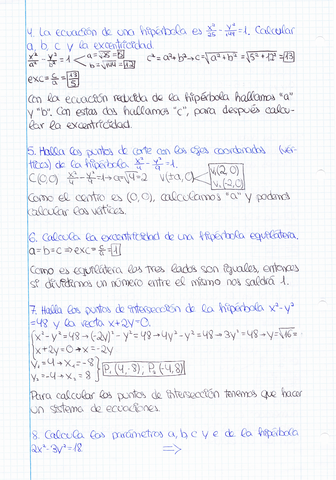 4. La ecuación de una hipérbola es x²/25 - y²/144 = 1. Calcular
a, b, c y la excentricidad.
x²/a² - y²/b² = 1 a=√25=5 b=√144=12 c²=a²+b²→c=√a²+b²=√5²+12²=13
exc=c/a=13/5
Con la ecuación reducida de la hipérbola hallamos "a"
y "b". Con estas dos hallamos "c", para después calcu-
lar la excentricidad.
5. Halla los puntos de corte con los ejes coordenados (vér-
tices) de la hipérbola x²/4 - y²/9 = 1.
C(0,0) x²/4 - y²/9 = 1 → a=√4=2 V(±a,0) V₁(2,0) V₂(-2,0)
Como el centro es (0,0), calculamos "a" y podemos
calcular los vértices.
6. Calcula la excentricidad de una hipérbola equilátera.
a=b=c ⇒ exc=c/a=1
Como es equilátera los tres lados son iguales, entonces
si dividimos un número entre el mismo nos saldrá 1.
7. Halla los puntos de intersección de la hipérbola x²-y²
=48 y la recta x+2y=0.
x²-y²=48→(-2y)²-y²=48→4y²-y²=48→3y²=48→y=√16=
x+2y=0→x=-2y
y₁=4→x₁=-8
y₂=-4→x₂=8 P₁(4,-8); P₂(-4,8)
Para calcular los puntos de intersección tenemos que hacer
un sistema de ecuaciones.
8. Calcula los parámetros a, b, c y e de la hipérbola
2x²-3y²=18 ⇒